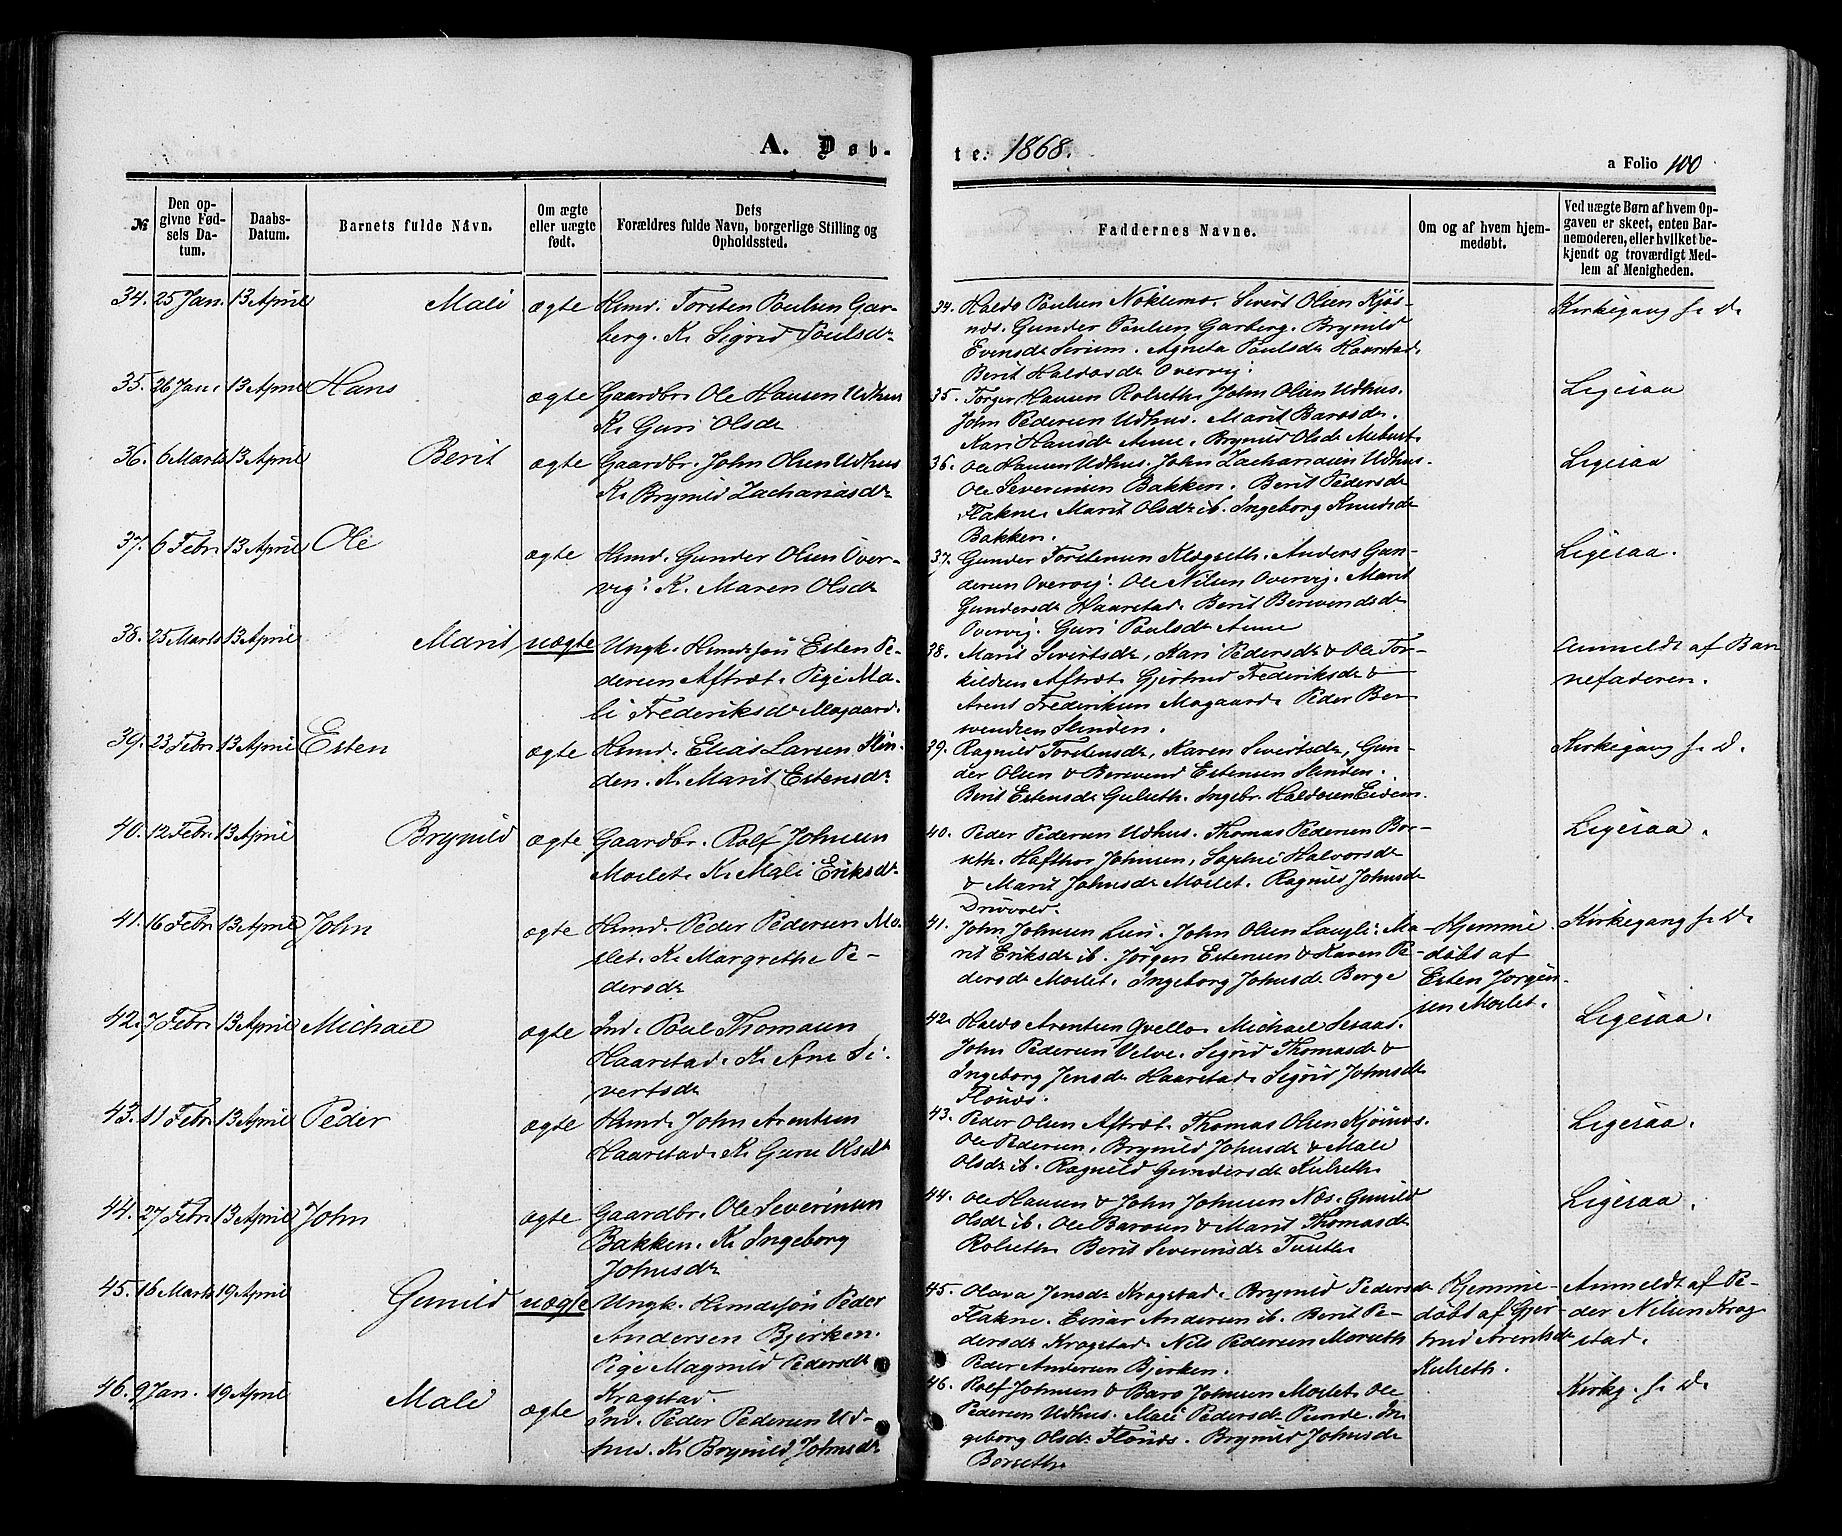 A. Døb-
te. 1868.
a Folio 100
№
Den op-
givne Fød-
sels Da-
tum.
Daabs-
Datum.
Barnets fulde Navn.
Om ægte
eller uægte
født.
Dets
Forældres fulde Navn, borgerlige Stilling og
Opholdssted.
Faddernes Navne.
Om og af hvem hjem-
medøbt.
Ved uægte Børn af hvem Op-
gaven er skeet, enten Bar-
nemoderen, eller hvilket be-
kjendt og troværdigt Med-
lem af Menigheden.
34. 25 Jan. 13 April Mali ægte Hsmd. Torsten Paulsen Gar-
berg. K. Sigrid Poulsdr
34. Haldo Paulsen Noklemo. Sivert Olsen Kjøs-
næs. Gunder Paulsen Garberg. Brynild
Evensdr Serum. Agneta Paulsdr Haarstad.
Berit Haldosdr Overvig.
Kirkegang f. D.
35. 26 Jan. 13 April Hans ægte Gaardbr. Ole Hansen Udhus
K. Guri Olsdr
35. Torger Hansen Rolseth. John Olsen Udhus.
John Pedersen Udhus. Marit Barosdr.
Kari Hansdr Aune. Brynild Olsdr Mebust.
Ligesaa
36. 6 Marts 13 April Berit ægte Gaardbr. John Olsen Udhus
K. Brynild Zachariasdr
36. Ole Hansen Udhus. John Zachariasen Udhus.
Ole Severinsen Bakken. Berit Pedersdr
Flakne. Marit Olsdr ib. Ingeborg Knudsdr
Bakken.
Ligesaa
37. 6 Febr. 13 April Ole ægte Hsmd. Gunder Olsen Over-
vig. K. Maren Olsdr
37. Gunder Torstensen Klegseth. Anders Gun-
dersen Overvig. Ole Nilsen Overvig. Marit
Gundersdr Haarstad. Berit Berevendsdr
Overvig. Guri Paulsdr Aune
Ligesaa.
38. 25 Marts 13 April Marit uægte Ungk. Hsmdssøn Esten Pe-
dersen Aftræt. Pige Ma-
li Frederiksdr Mogaard.
38. Marit Sivertsdr, Kari Pedersdr & Ole Tor-
kildsen Aftræt. Gjertrud Frederiksdr &
Arent Frederiksen Mogaard. Peder Ber-
wendsen Slinden.
Anmeldt af Bar-
nefaderen.
39. 23 Febr. 13 April Esten ægte Hsmd. Elias Larsen Slin-
den. K. Marit Estensdr
39. Ragnild Torstensdr, Karen Sivertsdr, Gun-
der Olsen & Berevend Estensen Slinden.
Berit Estensdr Gulseth. Ingebr. Haldosen Eidem.
Kirkegang f. D.
40. 12 Febr. 13 April Brynild ægte Gaardbr. Rolf Johnsen
Moslet. K. Mali Eriksdr
40. Peder Pedersen Udhus. Thomas Pedersen Bor-
seth. Hafthor Johnsen, Sophie Halvorsdr
& Marit Johnsdr Moslet. Ragnild Johnsdr
Drivvold.
Ligesaa.
41. 16 Febr. 13 April John ægte Hsmd. Peder Pedersen Mo-
slet. K. Margrethe Pe-
dersdr
41. John Johnsen Lien. John Olsen Langli. Ma-
rit Eriksdr ib. Jørgen Estensen & Karen Pe-
dersdr Moslet. Ingeborg Johnsdr Berge
Hjemme-
døbt af
Esten Jørgen-
sen Moslet.
Kirkegang f. D.
42. 7 Febr. 13 April Michael ægte Ind. Poul Thomasen
Haarstad. K. Ane Si-
vertsdr
42. Haldo Arentsen Qvello. Michael Sesaas.
John Pedersen Velve. Sigrid Thomasdr &
Ingeborg Jensdr Haarstad. Sigrid Johnsdr
Flønæs.
Ligesaa.
43. 11 Febr. 13 April Peder ægte Hsmd. John Arentsen
Haarstad. K. Guru Olsdr
43. Peder Olsen Aftræt. Thomas Olsen Kjøsnæs.
Ole Pedersen, Brynild Johnsdr & Mali
Olsdr ib. Ragnild Gundersdr Kulseth.
Ligesaa.
44. 27 Febr. 13 April John ægte Gaardbr. Ole Severinsen
Bakken. K. Ingeborg
Johnsdr
44. Ole Hansen & John Johnsen Næs. Gunild
Olsdr ib. Ole Barosen & Marit Thomasdr
Rolseth. Berit Severinsdr Tuseth.
Ligesaa.
45. 16 Marts 19 April Gunild uægte Ungk. Hsmdssøn Peder
Andersen Bjerken.
Pige Magnild Pedersdr
Kragstad.
45. Olava Jensdr Kragstad. Brynild Pedersdr
Flakne. Einar Andersen ib. Berit Pe-
dersdr Kragstad. Nils Pedersen Morseth
Peder Andersen Bjerken.
Hjemme-
døbt af Gjer-
trud Arentsdr
Kulseth.
Anmeldt af Pe-
der Nilsen Krag-
stad.
46. 9 Jan. 19 April Mali ægte Ind. Peder Pedersen Ud-
hus. K. Brynild Johnsdr
46. Rolf Johnsen & Baro Johnsen Moslet. Ole
Pedersen Udhus. Mali Pedersdr Runde. In-
geborg Olsdr Flønæs. Brynild Johnsdr
Borseth.
Kirkg. f. D.